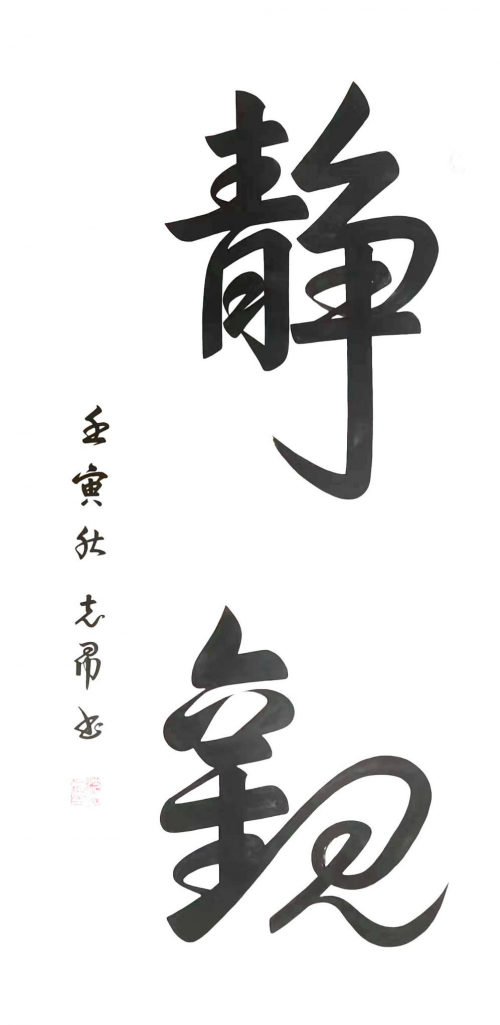 靜觀
壬寅秋志昂书